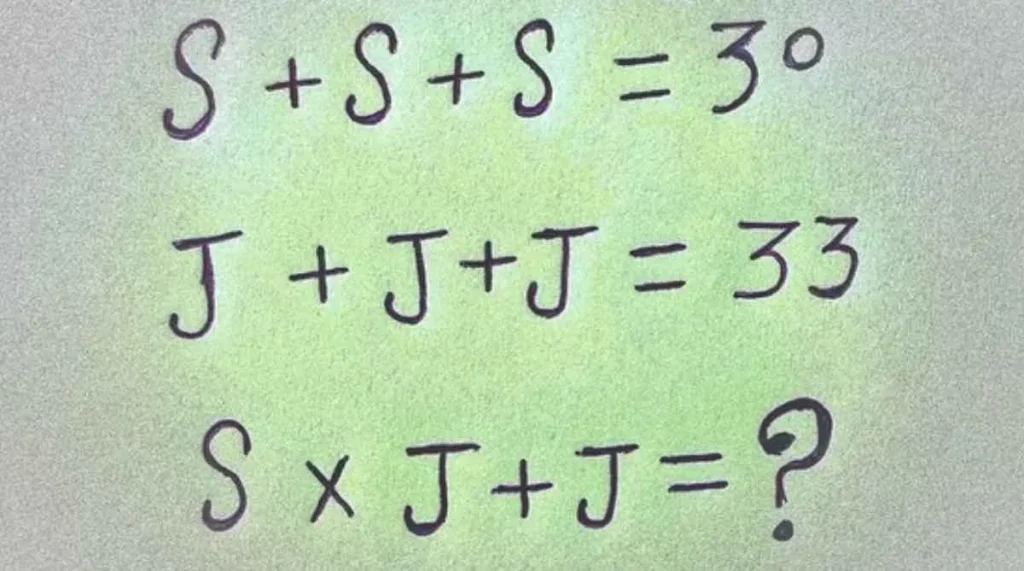 S + S + S = 30
J + J + J = 33
S x J + J = ?